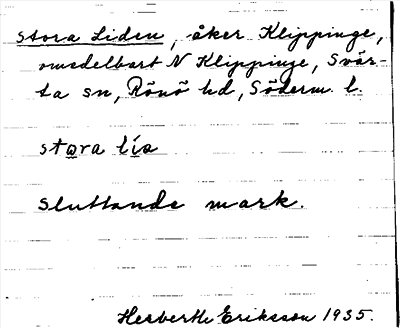 stora Liden, åker Klippinge,
omedelbart N Klippinge, Svär-
ta sn, Rönö hd, Söderm. l.
stora lia
sluttande mark.
Eriksson 1935.